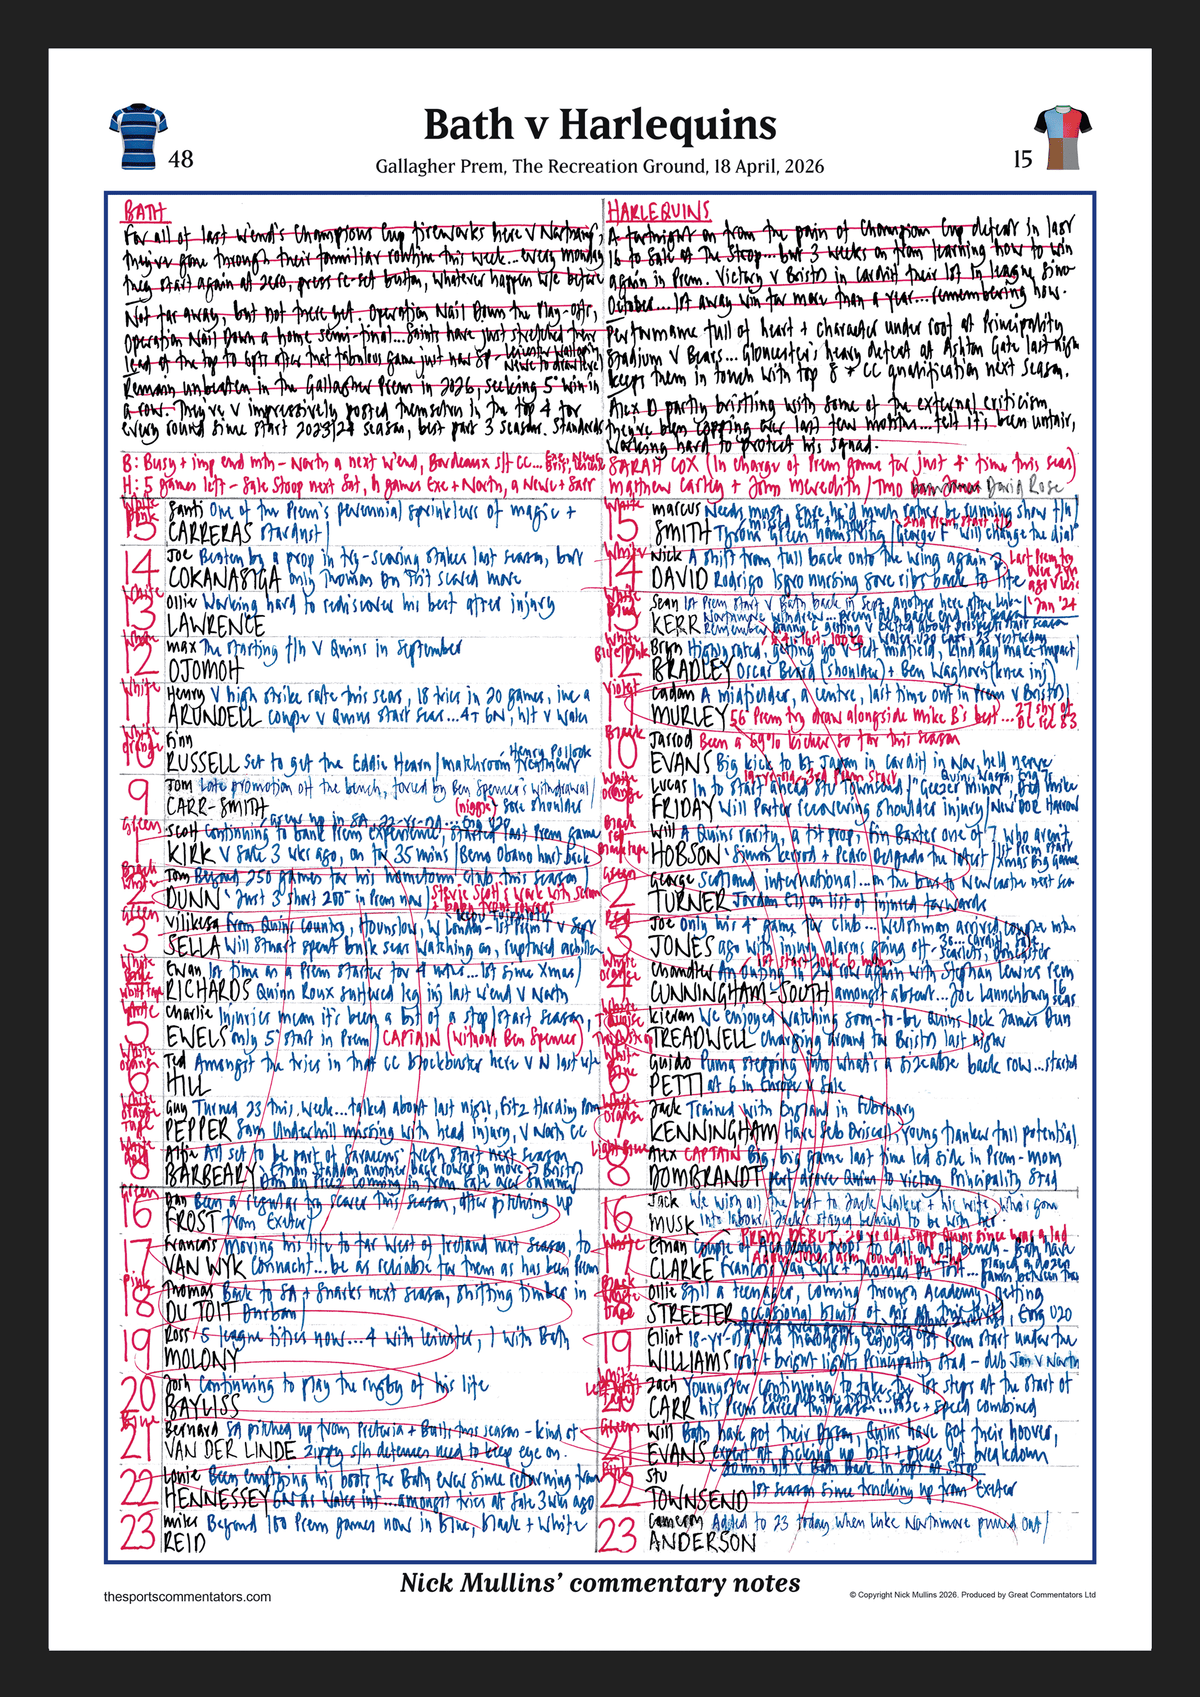 Bath v Harlequins
48
Gallagher Prem, The Recreation Ground, 18 April, 2026
15
BATH
For all of last w'end's Champions Cup fireworks here v Northants,
they've gone through their familiar routine this week...every monday
they start again at zero, press re-set button, whatever happen w/e before
Not far away, but not there yet. Operation Nail Down the Play-offs,
Operation Nail Down a home semi-final...Saints have just stretched their
lead at the top to 6pts after that fabulous game just now
Remain unbeaten in the Gallagher Prem in 2026, seeking 5th win in
a row. They're v impressively posted themselves in the top 4 for
every round since start 2023/24 season, best part 3 seasons. Standards
B: Busy + imp end mth - North a next w'end, Bordeaux s/f CC...
H: 5 games left - Sale Stoop next Sat, h games Exe + North, a Newc + Sarr
HARLEQUINS
A fortnight on from the pain of Champions Cup defeat in last
16 to Sale at The Stoop...but 3 weeks on from learning how to win
again in Prem. Victory v Bristol in Cardiff their 1st in league since
October...1st away win for more than a year...remembering how.
Performance full of heart + character under roof at Principality
Stadium v Bears...Gloucester's heavy defeat at Ashton Gate last nigh
keeps them in touch with top 8 + CC qualification next season.
Alex D partly bristling with some of the external criticism
they've been copping over last few months...felt it's been unfair,
working hard to protect his squad.
SARAH COX (In charge of Prem game for just 4th time this seas)
Matthew Carley + John Meredith/Timo David Rose
White
Pink
15
Santi One of the Prem's perennial sprinklers of magic +
CARRERAS stardust/
14
Joe Beaten by a prop in try-scoring stakes last season, but
COKANASIGA only Thomas Du Toit scored more
White
13
Ollie Working hard to rediscover his best after injury
LAWRENCE
White
12
Max The starting f/h v Quins in September
OJOMOH
White
11
Henry V high strike rate this seas, 18 tries in 20 games, inc a
ARUNDELL couple v Quins start seas...4T 6N, h/t v Wales
White
Orange
10
Finn Henry Pollock
RUSSELL set to get the Eddie Hearn/matchroom treatment
9
Tom Late promotion off the bench, forced by Ben Spencer's withdrawal/
CARR-SMITH (niggle) sore shoulder
Green
1
Grew up in SA, 22-yr-old...Eng U20
Scott Continuing to bank Prem experience, started last Prem game
KIRK v Sale 3 wks ago, on for 35 mins/Beno Obano hurt back
Black
White
2
Tom Beyond 250 games for his hometown club this season/
DUNN Just 3 short 200th in Prem now/ Stevie Scott's work with Scrum
Green
3
Vilikesa From Quins country, Hounslow, W London - 1st Prem T v Sarr
SELLA Will Stuart spent bulk seas watching on, ruptured achilles
White
Blue
White tape
4
Ewan 1st time as a Prem starter for 4 mths...1st since Xmas)
RICHARDS Quinn Roux suffered leg inj last w'end v North
White
5
Charlie Injuries mean it's been a bit of a stop/start season,
EWELS only 5th start in Prem) CAPTAIN (without Ben Spencer)
White
Orange
6
Ted Amongst the tries in that CC blockbuster here v N last w/e
HILL
White
Orange
Tape
7
Guy Turned 23 this week...talked about last night, Fitz Harding Pom
PEPPER Sam Underhill missing with head injury, v North CC
White
8
Alfie All set to be part of Saracens' fresh start next season
BARBEARY Ethan Staddon another back rower on move > Bristol
Dan Du Preez coming in from Sale over summer
Green
16
Dan Been a regular try scorer this season, after pitching up
FROST from Exeter/
17
Francois Moving his life to far West of Ireland next season, to
VAN WYK Connacht...be as reliable for them as has been from
Pink
18
Thomas Back to SA + Sharks next season, shifting timber in
DU TOIT Durban/
19
Ross 5 league titles now...4 with Leinster, 1 with Bath
MOLONY
20
Josh Continuing to play the rugby of his life
BAYLISS
Blue
21
Bernard SA pitched up from Pretoria + Bulls this season - kind of
VAN DER LINDE zippy s/h defences need to keep eye on.
22
Louie Been emptying his boots for Bath ever since returning from
HENNESSEY 6N as Wales int...amongst tries at Sale 3 wks ago
23
Miles Beyond 100 Prem games now in Blue, Black + White
REID
White
15
Marcus Needs must, sure he'd much rather be running show f/h/
SMITH Tyrone Green hamstring/George F will change the dial
2nd Prem start f/b
White
14
Nick A shift from full back onto the wing again
DAVID Rodrigo Isgro nursing sore ribs back to life
Last Prem try
White
Blue
13
Sean 1st Prem start v Bath back in Sept, another here after Luke
KERR Northmore withdrew...
Jan '24
Blue/Pink
12
Bryn Highly rated, getting go v Fest midfield, kind day make impact/
BRADLEY Oscar Beard (shoulder) + Ben Waghorn (knee inj)
Violet
11
Cadan A midfielder, a centre, last time out in Prem v Bristol
MURLEY 56th Prem try draw alongside Mike B's best...27 shy of
DC rec 83.
Black
10
Jarrod Been a 69% kicker so far this season
EVANS Big kick to bt Japan in Cardiff in Nov, held nerve
White
Orange
9
19-yr-old - 3rd Prem start
Lucas In to start ahead Stu Townsend/"Geezer Minor",
FRIDAY Will Porter recovering shoulder injury/New DOR Harrow
Black
Red
Black tape
1
Will A Quins rarity, a 1st prop, Fin Baxter one of 7 who aren't
HOBSON Simon Kerrod + Pedro Delgado the latest/1st Prem start
Xmas Big Game
Green
2
George Scotland international...on the bus to Newcastle next sea
TURNER Jordan Els on list of injured forwards
Red
3
Joe only his 4th game for club...Welshman arrived couple mths
JONES ago with injury alarms going off - 36...Cardiff, Sale
Scarlets, Doncaster
White
Orange
4
1st start lock 6 mths
Chandler An outing in 2nd row again with Stephan Lewies rem
CUNNINGHAM-SOUTH amongst absent...Joe Launchbury 16 seas
5
Kieran We enjoyed watching soon-to-be Quins lock James Dun
TREADWELL Charging around for Bristol last night
White
Blue
6
Guido Puma stepping into what's a sizeable back row...started
PETTI at 6 in Europe v Sale
White
Orange
7
Jack Trained with England in February
KENNINGHAM Have Seb Driscoll, young flanker full potential
Light Blue
8
Alex CAPTAIN Big, big game last time led side in Prem - mom
DOMBRANDT perf drove Quins to victory Principality Stad
16
Jack We wish all the best to Jack Walker + his wife, who's gone
MUSK into labour. Jack's staying behind to be with her.
White
17
PREM DEBUT, 20 yr old, Supp Quins since was a lad
Ethan Couple of Academy props to call on off bench - Both have
CLARKE Francois Van Wyk + Thomas Du Toit... played a dozen
games between them
Black
White
Tape
18
Ollie Still a teenager, coming through Academy, getting
STREETER occasional blasts of air at this level, Eng U20
19
Elliot 18-yr-old who thoroughly enjoyed 1st Prem start under the
WILLIAMS roof + bright lights Principality Stad - dub Jan v North
White
20
Zach Youngster continuing to take his 1st steps at the start of
CARR his Prem career this season...size + speed combined
Green
21
Will Bath have got their Dyson, Quins have got their hoover,
EVANS expert at picking up bits + pieces at breakdown
22
Stu 20 min h/t v Bath back in Sept at Stoop
TOWNSEND 1st season since trucking up from Exeter
23
Cameron Added to 23 today when Luke Northmore pulled out/
ANDERSON
Nick Mullins' commentary notes
thesportscommentators.com
© Copyright Nick Mullins 2026. Produced by Great Commentators Ltd